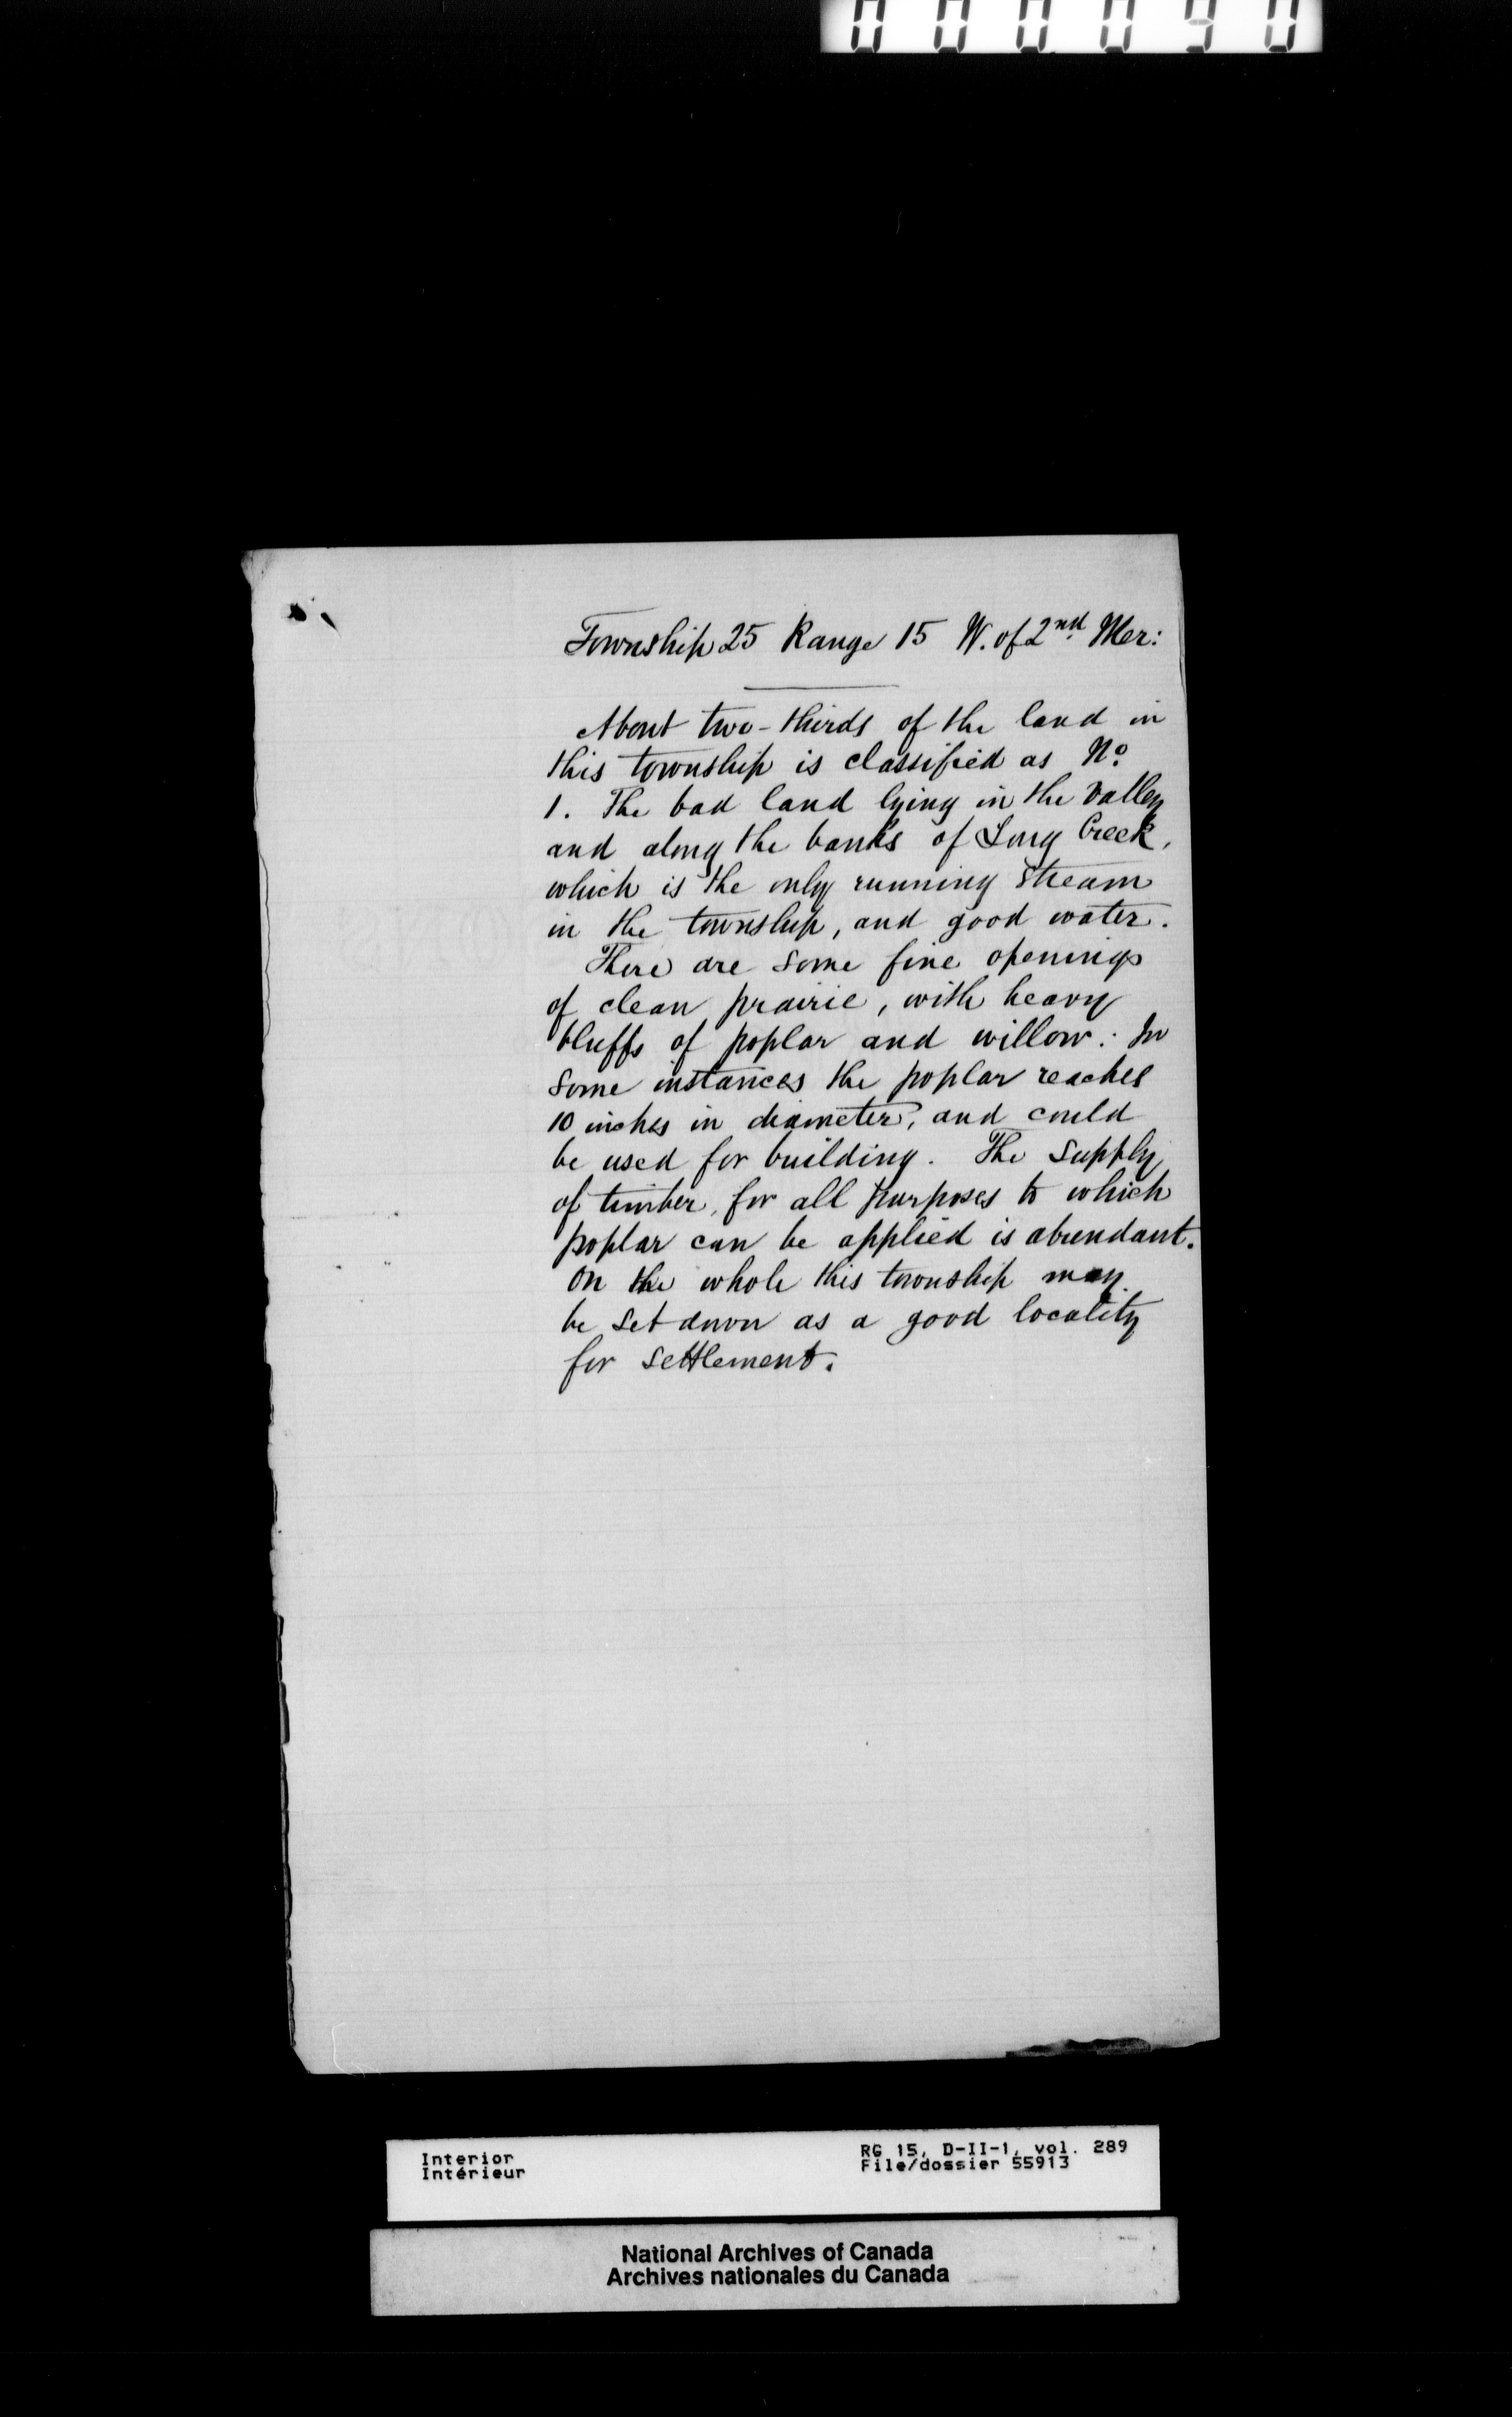 000090
Township 25 Range 15 W. of 2nd Mer:
About two-thirds of the land in
this township is classified as No.
1. The bad land lying in the valley
and along the banks of Long Creek,
which is the only running stream
in the township, and good water.
There are some fine openings
of clean prairie, with heavy
bluffs of poplar and willow. In
some instances the poplar reaches
10 inches in diameter, and could
be used for building. The supply
of timber, for all purposes to which
poplar can be applied is abundant.
On the whole this township may
be set down as a good locality
for settlement.
Interior
Intérieur
RG 15, D-II-1, vol. 289
File/dossier 55913
National Archives of Canada
Archives nationales du Canada